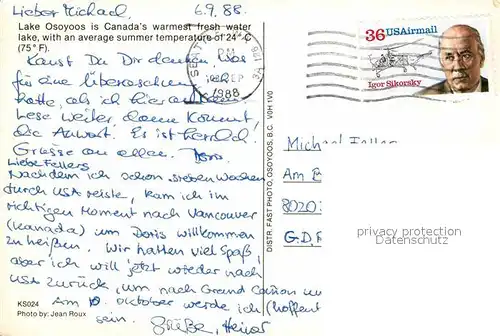 Lieber Michael, 6.9.88.
Lake Osoyoos is Canada's warmest fresh water
lake, with an average summer temperature of 24° C
(75° F).
Kannst Du Dir denken, was
für eine Überraschung
hatte, als ich hier
Lese weiter dann kommt
die Antwort. Es ist herrlich.
Grüsse an allen. Doris
Liebe Fellers
Nachdem ich schon sieben Wochen
durch USA reiste, kam ich im
richtigen Moment nach Vancouver
(Kanada) um Doris willkommen
zu heißen. Wir hatten viel Spaß,
aber ich will jetzt wieder nach
USA zurück, um nach Grand Canyon
Am 10. Oktober werde ich (hoffent
sein. Grüße, Heiner
KS024
Photo by: Jean Roux
DISTR. FAST PHOTO, OSOYOOS, B.C. V0H 1V0
SEATTLE
PM
SEP
1988
36 USAirmail
Igor Sikorsky
Michael
Am
8020
G.D.
privacy protection
Datenschutz